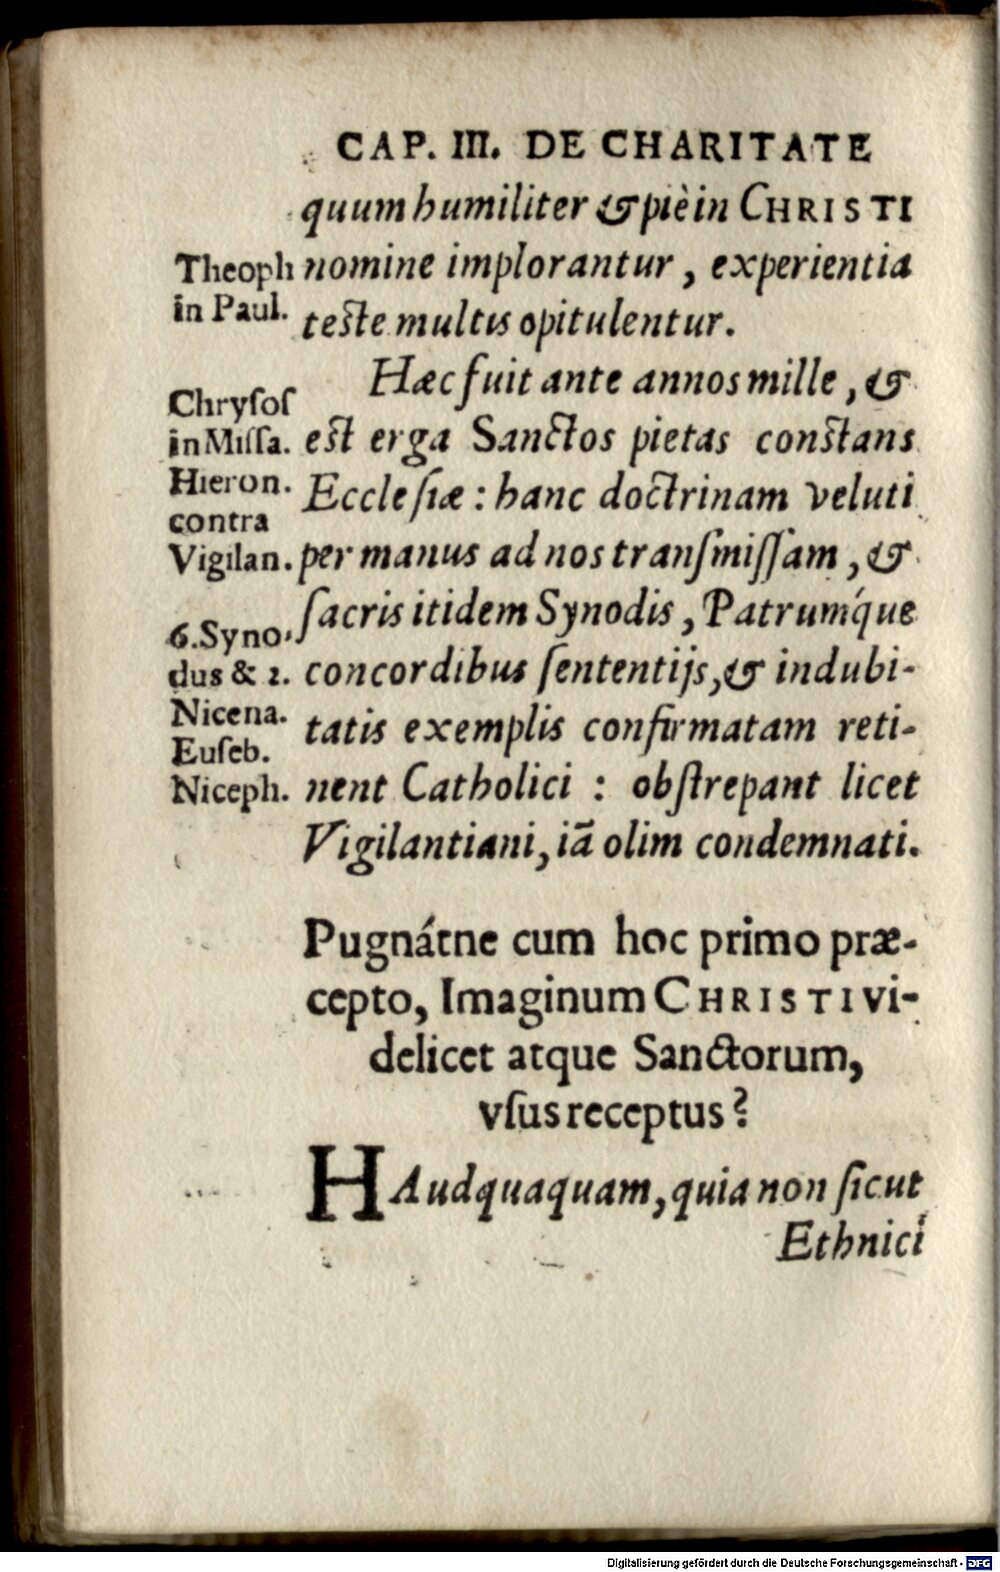 CAP. III. DE CHARITATE
quum humiliter & piè in CHRISTI
nomine implorantur, experientia
teste multis opitulentur.
Theoph
in Paul.
Hæc fuit ante annos mille, &
est erga Sanctos pietas constans
Ecclesiæ: hanc doctrinam veluti
per manus ad nos transmissam, &
sacris itidem Synodis, Patrumq́ue
concordibus sententijs, & indubi-
tatis exemplis confirmatam reti-
nent Catholici : obstrepant licet
Vigilantiani, iã olim condemnati.
Chrysos
in Missa.
Hieron.
contra
Vigilan.
6. Syno-
dus & 2.
Nicena.
Euseb.
Niceph.
Pugnátne cum hoc primo præ-
cepto, Imaginum CHRISTI vi-
delicet atque Sanctorum,
vsus receptus?
HAudquaquam, quia non sicut
Ethnici
Digitalisierung gefördert durch die Deutsche Forschungsgemeinschaft - DFG